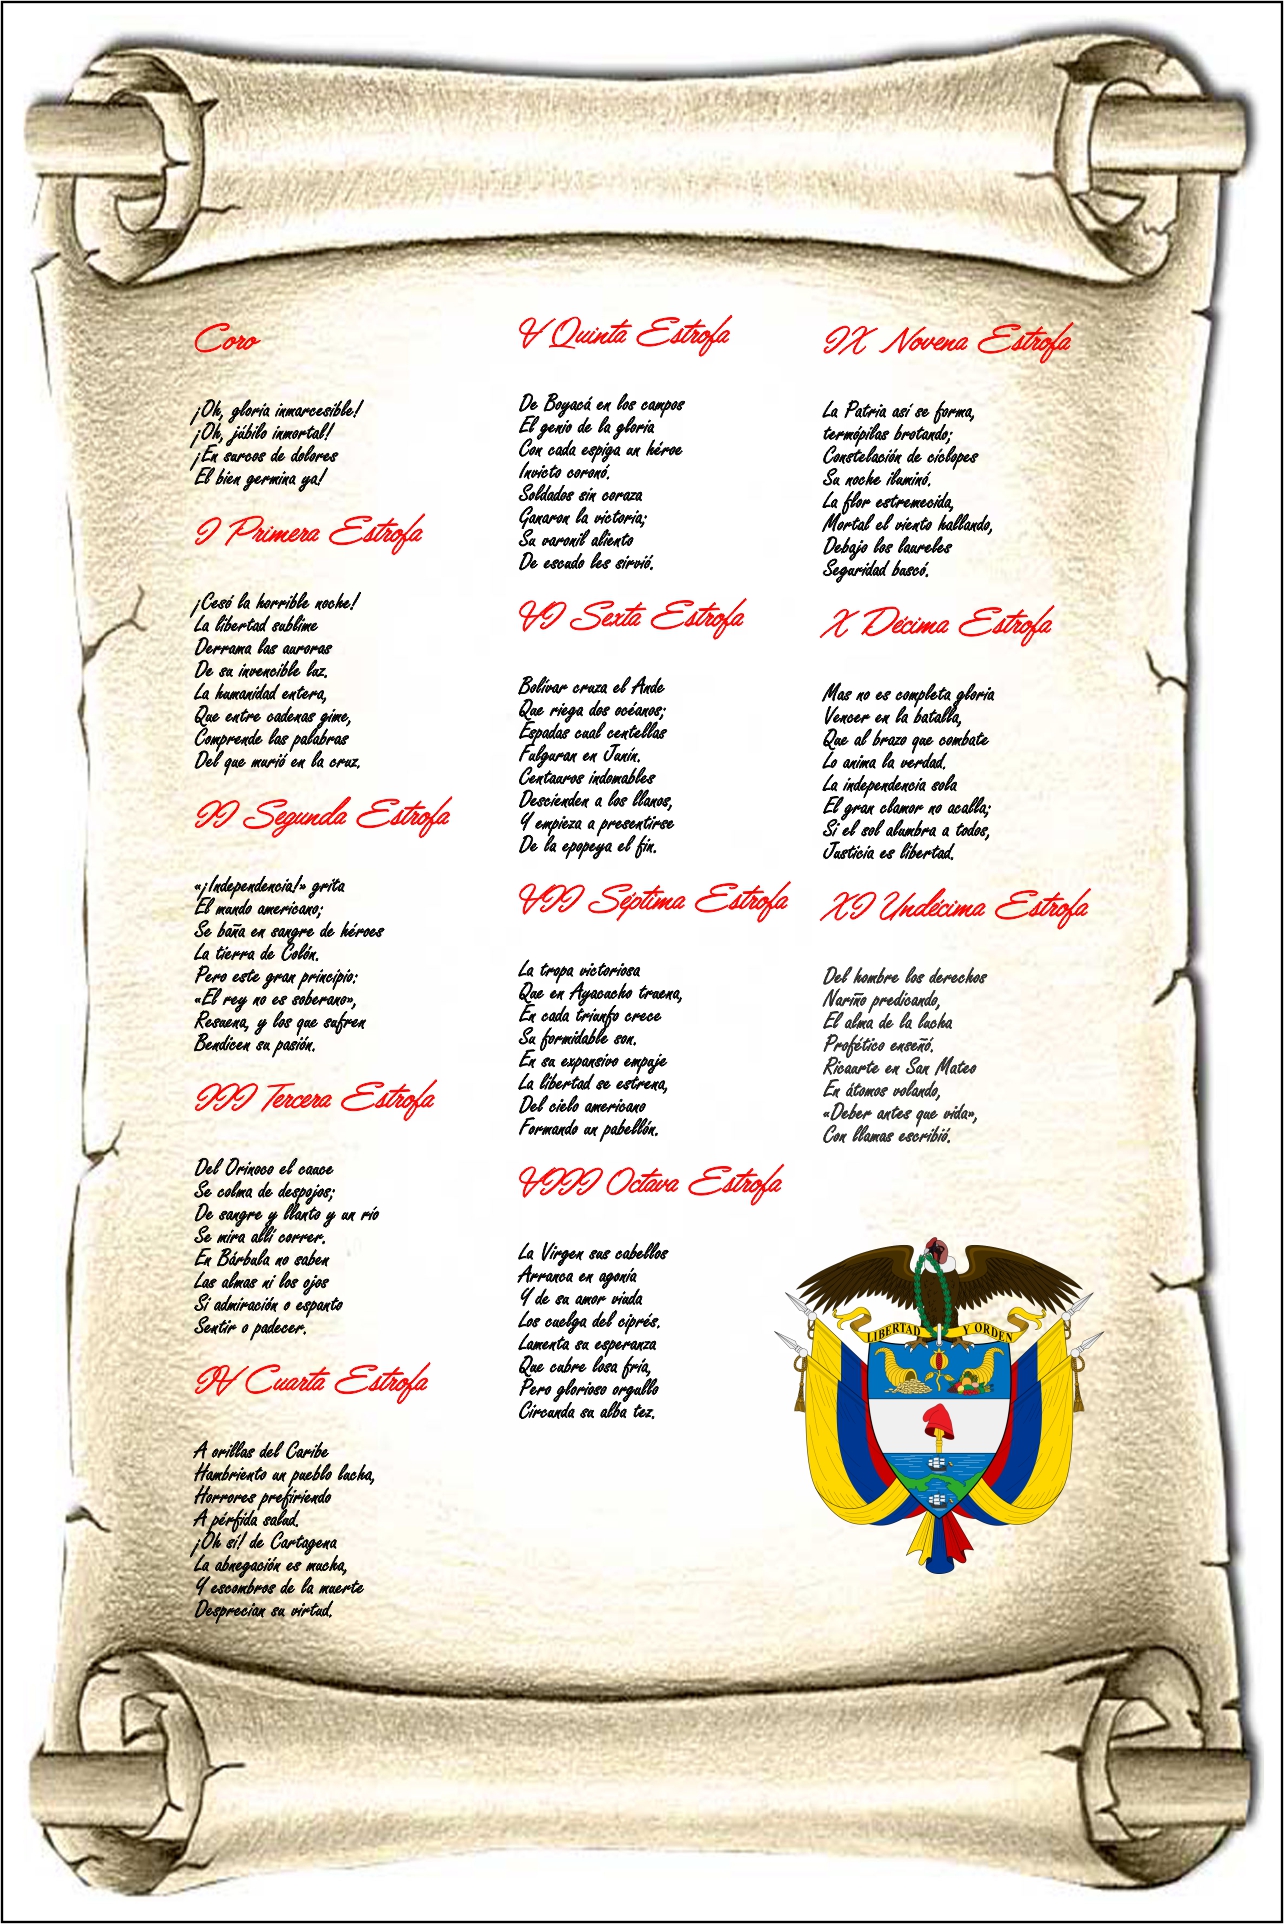 Coro
¡Oh, gloria inmarcesible!
¡Oh, júbilo inmortal!
¡En surcos de dolores
El bien germina ya!
I Primera Estrofa
¡Cesó la horrible noche!
La libertad sublime
Derrama las auroras
De su invencible luz.
La humanidad entera,
Que entre cadenas gime,
Comprende las palabras
Del que murió en la cruz.
II Segunda Estrofa
«¡Independencia!» grita
El mundo americano;
Se baña en sangre de héroes
La tierra de Colón.
Pero este gran principio:
«El rey no es soberano»,
Resuena, y los que sufren
Bendicen su pasión.
III Tercera Estrofa
Del Orinoco el cauce
Se colma de despojos;
De sangre y llanto y un río
Se mira allí correr.
En Bárbula no saben
Las almas ni los ojos
Si admiración o espanto
Sentir o padecer.
IV Cuarta Estrofa
A orillas del Caribe
Hambriento un pueblo lucha,
Horrores prefiriendo
A pérfida salud.
¡Oh sí! de Cartagena
La abnegación es mucha,
Y escombros de la muerte
Desprecian su virtud.
V Quinta Estrofa
De Boyacá en los campos
El genio de la gloria
Con cada espiga un héroe
Invicto coronó.
Soldados sin coraza
Ganaron la victoria;
Su varonil aliento
De escudo les sirvió.
VI Sexta Estrofa
Bolívar cruza el Ande
Que riega dos océanos;
Espadas cual centellas
Fulguran en Junín.
Centauros indomables
Descienden a los llanos,
Y empieza a presentirse
De la epopeya el fin.
VII Séptima Estrofa
La tropa victoriosa
Que en Ayacucho truena,
En cada triunfo crece
Su formidable son.
En su expansivo empuje
La libertad se estrena,
Del cielo americano
Formando un pabellón.
VIII Octava Estrofa
La Virgen sus cabellos
Arranca en agonía
Y de su amor viuda
Los cuelga del ciprés.
Lamenta su esperanza
Que cubre losa fría,
Pero glorioso orgullo
Circunda su alba tez.
IX Novena Estrofa
La Patria así se forma,
termópilas brotando;
Constelación de cíclopes
Su noche iluminó.
La flor estremecida,
Mortal el viento hallando,
Debajo los laureles
Seguridad buscó.
X Décima Estrofa
Mas no es completa gloria
Vencer en la batalla,
Que al brazo que combate
Lo anima la verdad.
La independencia sola
El gran clamor no acalla;
Si el sol alumbra a todos,
Justicia es libertad.
XI Undécima Estrofa
Del hombre los derechos
Nariño predicando,
El alma de la lucha
Profético enseñó.
Ricaurte en San Mateo
En átomos volando,
«Deber antes que vida»,
Con llamas escribió.
LIBERTAD Y ORDEN